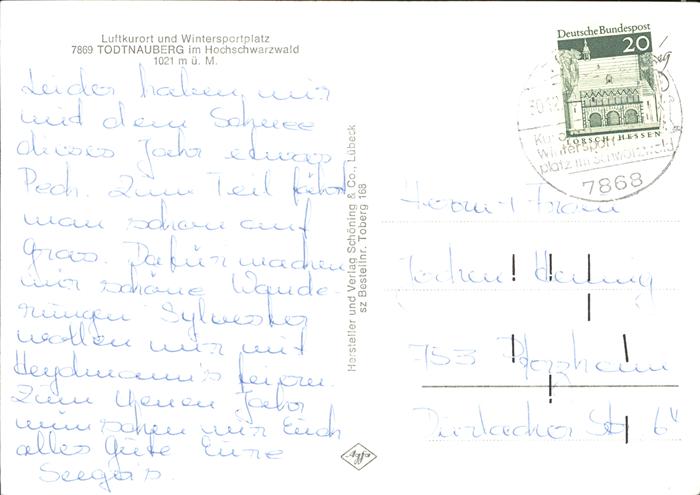 Luftkurort und Wintersportplatz
7869 TODTNAUBERG im Hochschwarzwald
1021 m ü. M.
Leider haben wir
mit dem Schnee
dieses Jahr etwas
Pech. Zum Teil fährt
man schon auf
Gras. Dafür machen
wir schöne Wande-
rungen Sylvester
wollen wir mit
Heydmann's feiern.
Zum neuen Jahr
wünschen wir Euch
alles Gute Eure
Seegers.
Hersteller und Verlag Schöning & Co., Lübeck
sz Bestellnr. Toberg 168
Agfa
Deutsche Bundespost
20
LORSCH/HESSEN
Wintersport
platz im Schwarzwald
7868
Herrn + Frau
Jochen Hennig
753 Pforzheim
Durlacher Str. 6